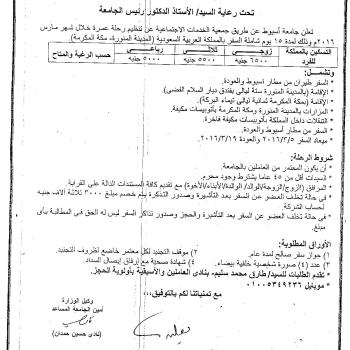 تحت رعاية السيد/ الأستاذ الدكتور/ رئيس الجامعة
تعلن جامعة أسيوط عن طريق جمعية الخدمات الاجتماعية عن تنظيم رحلة عمرة خلال شهر مارس
٢٠١٦م وذلك لمدة ١٥ يوم شاملة السفر بالمملكة العربية السعودية (المدينة المنورة، ومكة المكرمة)
التسكين بالمملكة زوجي ثلاثي رباعي حسب الرغبة والمتاح
للفرد ٦٥٠٠ جنيه ٥٥٠٠ جنيه ٥٠٠٠ جنيه
وتشمل:
• السفر طيران من مطار أسيوط والعودة.
• الإقامة (بالمدينة المنورة ستة ليالي بفندق ديار السلام الفضي).
• الإقامة (بمكة المكرمة ثمانية ليالي تيماء البركة).
• المزارات بالمدينة المنورة ومكة المكرمة بأتوبيسات مكيفة.
• التنقلات داخل المملكة بأتوبيسات مكيفة.
• السفر من مطار أسيوط والعودة.
• ميعاد السفر ٢٠١٦/٣/٥ والعودة ٢٠١٦/٣/١٩
شروط الرحلة:
• أن يكون المعتمر من العاملين بالجامعة.
• السيدات أقل من ٤٥ عاما يشترط وجود محرم.
• المرافق (الزوج/الزوجة/الوالد/الوالدة/الأبناء/الأخوة) مع تقديم كافة المستندات الدالة على القرابة
• في حالة تخلف العضو عن السفر بعد التأشيرة وصدور التذكرة يتم خصم مبلغ ٣٠٠٠ ثلاثة آلاف جنيه
لحساب الشركة.
• في حالة تخلف العضو عن السفر بعد التأشيرة وصدور تذاكر السفر ليس له الحق في المطالبة بأي
مبلغ.
الأوراق المطلوبة:
١) جواز سفر صالح لمدة عام. ٢) موقف التجنيد لكل معتمر خاضع لظروف التجنيد
٣) عدد (٤) صورة شخصية خلفية بيضاء. ٤) شهادة صحية مع إرفاق إيصال السداد
• تقدم الطلبات للسيد/ طارق محمد سليم، بنادي العاملين والأسبقية بأولوية الحجز.
• موبايل ٠١٠٠٥٣٤٩٢٣٦
مع تمنياتنا لكم بالتوفيق،،،
وكيل الوزارة
أمين الجامعة المساعد
(نادى حسين حمدان)